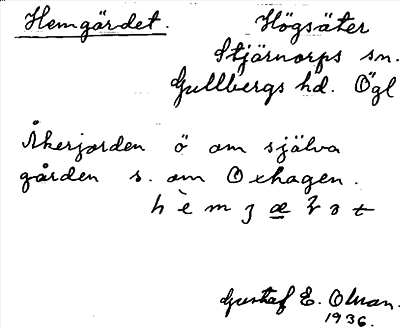 Hemgärdet. Högsäter
Stjärnorps sn.
Gullbergs hd. Ögl
Åkerjorden ö om själva
gården s. om Oxhagen.
Gustaf E. Olsson.
1936.